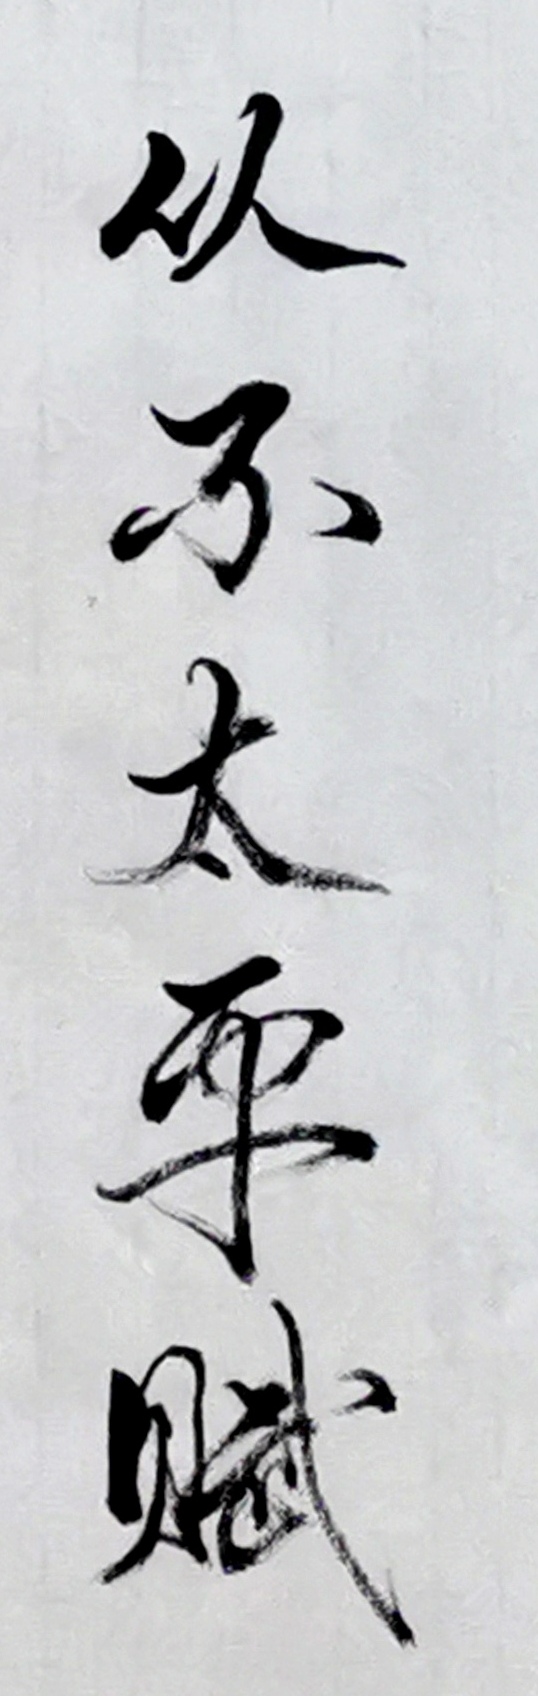 从不太平赋